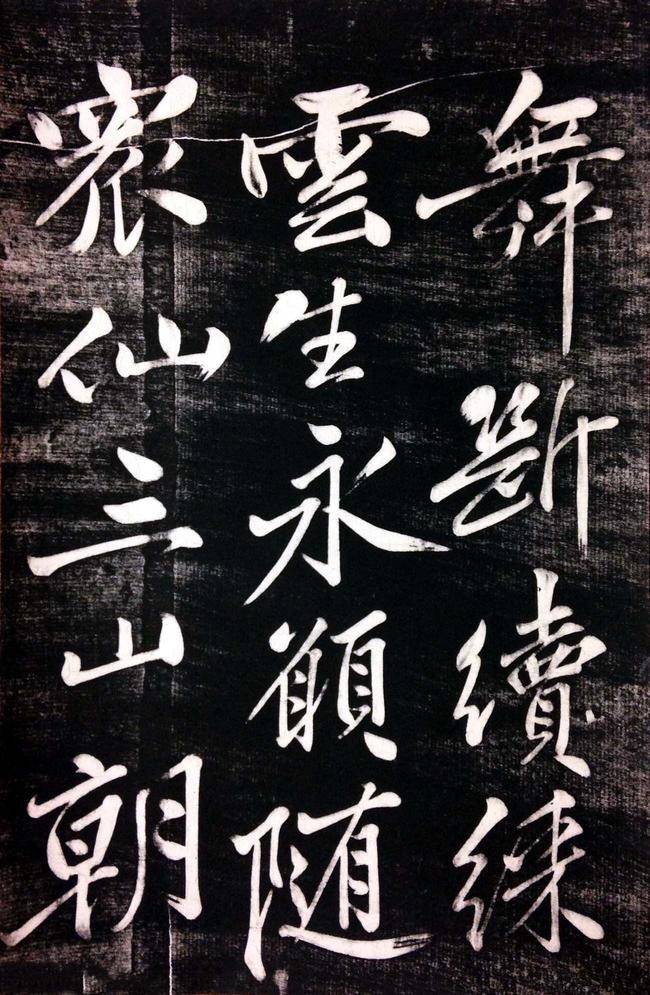 舞斷續綵
雲生永願随
衆仙三山朝